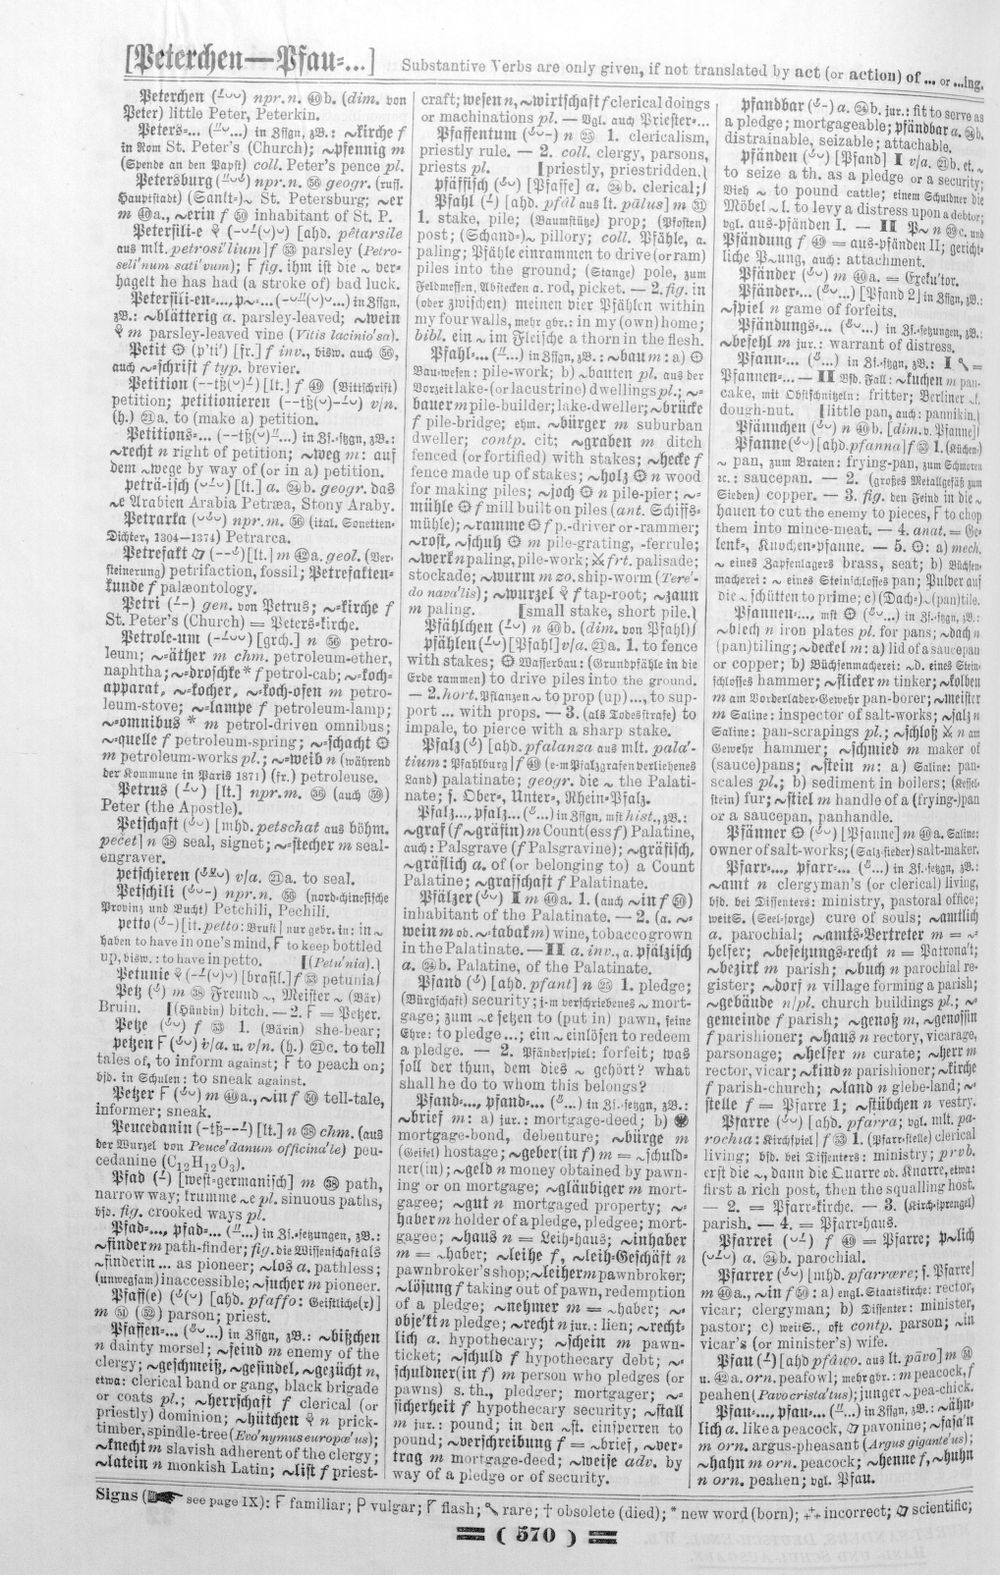 [Peterchen—Pfau=...] Substantive Verbs are only given, if not translated by act (or action) of ... or ...ing.
Peterchen (⏌◡◡) npr. n. ㊵b. (dim. von
Peter) little Peter, Peterkin.
Peters=... (⏌◡...) in Zssgn, zB.: ~kirche f
in Rom St. Peter's (Church); ~pfennig m
(Spende an den Papst) coll. Peter's pence pl.
Petersburg npr. n. geogr. (russ.
Hauptstadt) (Sankt=)~ St. Petersburg; ~er
m ㊵a., ~erin f ㊿ inhabitant of St. P.
Petersili-e [ahd. pêtarsile
aus mlt. petrosi'lium] f parsley (Petro-
seli'num sati'vum); F fig. ihm ist die ~ ver=
hagelt he has had (a stroke of) bad luck.
Petersilien=..., p~=... in Zssgn,
zB.: ~blätterig a. parsley-leaved; ~wein
m parsley-leaved vine (Vitis lacinio'sa).
Petit (p'ti') [fr.] f inv., bisw. auch
auch ~=schrift f typ. brevier.
Petition [lt.] f ㊾ (Bittschrift)
petition; petitionieren v/n.
(h.) ㉑a. to (make a) petition.
Petitions=... in Zs.=stzgn, zB.:
~recht n right of petition; ~weg m: auf
dem ~wege by way of (or in a) petition.
peträ-isch [lt.] a. ㉔b. geogr. das
~e Arabien Arabia Petræa, Stony Araby.
Petrarka npr. m. (ital. Sonetten=
Dichter, 1304—1374) Petrarca.
Petrefakt [lt.] m ㊷a. geol. (Ver=
steinerung) petrifaction, fossil; Petrefakten=
kunde f palæontology.
Petri gen. von Petrus; ~=kirche f
St. Peter's (Church) = Peters=kirche.
Petrole-um [grch.] n petro-
leum; ~=äther m chm. petroleum-ether,
naphtha; ~=droschke * f petrol-cab; ~=koch=
apparat, ~=kocher, ~=koch=ofen m petro-
leum-stove; ~=lampe f petroleum-lamp;
~=omnibus * m petrol-driven omnibus;
~=quelle f petroleum-spring; ~=schacht
m petroleum-works pl.; ~=weib n (während
der Kommune in Paris 1871) (fr.) petroleuse.
Petrus [lt.] npr. m. ㊱ (auch)
Peter (the Apostle).
Petschaft [mhd. petschat aus böhm.
pečet] n ㊳ seal, signet; ~=stecher m seal-
engraver.
petschieren v/a. ㉑a. to seal.
Petschili npr. n. (nord=chinesische
Provinz und Bucht) Petchili, Pechili.
petto [it. petto: Brust] nur gebr. in: in ~
haben to have in one's mind, F to keep bottled
up, bisw.: to have in petto. [(Petu'nia).
Petunie [brasil.] f petunia
Petz m ㊳ Freund ~, Meister ~ (Bär)
Bruin. [(Hündin) bitch. — 2. F = Petzer.
Petze f 1. (Bärin) she-bear;
petzen F v/a. u. v/n. (h.) ㉑c. to tell
tales of, to inform against; F to peach on;
bsd. in Schulen: to sneak against.
Petzer F m ㊵a., ~in f ㊿ tell-tale,
informer; sneak.
Peucedanin [lt.] n ㊳ chm. (aus
der Wurzel von Peuce'danum officina'le) peu-
cedanine (C12H12O3).
Pfad [west=germanisch] m ㊳ path,
narrow way; krumme ~e pl. sinuous paths,
bsd. fig. crooked ways pl.
Pfad=..., pfad=... in Zs.=setzungen, zB.:
~finder m path-finder; fig. die Wissenschaft als
~finderin ... as pioneer; ~los a. pathless;
(unwegsam) inaccessible; ~sucher m pioneer.
Pfaff(e) [ahd. pfaffo: Geistliche(r)]
m parson; priest.
Pfaffen=... in Zssgn, zB.: ~bißchen
n dainty morsel; ~feind m enemy of the
clergy; ~geschmeiß, ~gesindel, ~gezücht n,
etwa: clerical band or gang, black brigade
or coats pl.; ~herrschaft f clerical (or
priestly) dominion; ~hütchen n prick-
timber, spindle-tree (Evo'nymus europæ'us);
~knecht m slavish adherent of the clergy;
~latein n monkish Latin; ~list f priest-
craft; ~wesen n, ~wirtschaft f clerical doings
or machinations pl. — Vgl. auch Priester=...
Pfaffentum n 1. clericalism,
priestly rule. — 2. coll. clergy, parsons,
priests pl. [priestly, priestridden.
pfäffisch [Pfaffe] a. ㉔b. clerical;
Pfahl [ahd. pfâl aus lt. pālus] m
1. stake, pile; (Baumstütze) prop; (Pfosten)
post; (Schand=)~ pillory; coll. Pfähle, a.
paling; Pfähle einrammen to drive (or ram)
piles into the ground; (Stange) pole, zum
Feldmessen, Abstecken a. rod, picket. — 2. fig. in
(oder zwischen) meinen vier Pfählen within
my four walls, mehr gbr.: in my (own) home;
bibl. ein ~ im Fleische a thorn in the flesh.
Pfahl=... in Zssgn, zB.: ~bau m: a)
Bau=wesen: pile-work; b) ~bauten pl. aus der
Vorzeit lake-(or lacustrine) dwellings pl.; ~=
bauer m pile-builder; lake-dweller; ~brücke
f pile-bridge; ehm. ~bürger m suburban
dweller; contp. cit; ~graben m ditch
fenced (or fortified) with stakes; ~hecke f
fence made up of stakes; ~holz n wood
for making piles; ~joch n pile-pier; ~=
mühle f mill built on piles (ant. Schiffs=
mühle); ~ramme f p.-driver or -rammer;
~rost, ~schuh m pile-grating, -ferrule;
~werk n paling, pile-work; frt. palisade;
stockade; ~wurm m zo. ship-worm (Tere'-
do nava'lis); ~wurzel f tap-root; ~zaun
m paling. [small stake, short pile.
Pfählchen n ㊵b. (dim. von Pfahl)
pfählen [Pfahl] v/a. ㉑a. 1. to fence
with stakes; Wasserbau: (Grundpfähle in die
Erde rammen) to drive piles into the ground.
— 2. hort. Pflanzen ~ to prop (up) ..., to sup-
port ... with props. — 3. (als Todesstrafe) to
impale, to pierce with a sharp stake.
Pfalz [ahd. pfalanza aus mlt. pala'-
tium: Pfahlburg] f ㊾ (e-m Pfalzgrafen verliehenes
Land) palatinate; geogr. die ~ the Palati-
nate; s. Ober=, Unter=, Rhein=Pfalz.
Pfalz=..., pfalz=... in Zssgn, mst hist., zB.:
~graf (f ~gräfin) m Count(ess f) Palatine,
auch: Palsgrave (f Palsgravine); ~gräfisch,
~gräflich a. of (or belonging to) a Count
Palatine; ~grafschaft f Palatinate.
Pfälzer I m ㊵a. 1. (auch ~in f ㊿)
inhabitant of the Palatinate. — 2. (a. ~=
wein m od. ~=tabak m) wine, tobacco grown
in the Palatinate. — II a. inv., a. pfälzisch
a. ㉔b. Palatine, of the Palatinate.
Pfand [ahd. pfant] n 1. pledge;
(Bürgschaft) security; j-m verschriebenes ~ mort-
gage; zum ~e setzen to (put in) pawn, seine
Ehre: to pledge ...; ein ~ einlösen to redeem
a pledge. — 2. Pfänderspiel: forfeit; was
soll der thun, dem dies ~ gehört? what
shall he do to whom this belongs?
Pfand=..., pfand=... in Zs.=setzgn, zB.:
~brief m: a) jur.: mortgage-deed; b)
mortgage-bond, debenture; ~bürge m
(Geisel) hostage; ~geber(in f) m = ~schuld=
ner(in); ~geld n money obtained by pawn-
ing or on mortgage; ~gläubiger m mort-
gagee; ~gut n mortgaged property; ~=
haber m holder of a pledge, pledgee; mort-
gagee; ~haus n = Leih=haus; ~inhaber
m = ~haber; ~leihe f, ~leih=Geschäft n
pawnbroker's shop; ~leiher m pawnbroker;
~lösung f taking out of pawn, redemption
of a pledge; ~nehmer m = ~haber; ~=
obje'kt n pledge; ~recht n jur.: lien; ~recht=
lich a. hypothecary; ~schein m pawn-
ticket; ~schuld f hypothecary debt; ~=
schuldner(in f) m person who pledges (or
pawns) s. th., pledger; mortgager; ~=
sicherheit f hypothecary security; ~stall
m jur.: pound; in den ~st. einsperren to
pound; ~verschreibung f = ~brief, ~ver=
trag m mortgage-deed; ~weise adv. by
way of a pledge or of security.
pfandbar a. ㉔b. jur.: fit to serve as
a pledge; mortgageable; pfändbar a. ㉔b.
distrainable, seizable; attachable.
pfänden [Pfand] I v/a. et. ~
to seize a th. as a pledge or a security;
Vieh ~ to pound cattle; einem Schuldner die
Möbel ~ l. to levy a distress upon a debtor;
vgl. aus=pfänden I. — II P~ n c. und
Pfändung f ㊾ = aus=pfänden II; gericht=
liche P~ung, auch: attachment.
Pfänder m ㊵a. = Exeku'tor.
Pfänder=... [Pfand 2] in Zssgn, zB.:
~spiel n game of forfeits.
Pfändungs=... in Zs.=setzungen, zB.:
~befehl m jur.: warrant of distress.
Pfann=... in Zs.=stzgn, zB.: I =
Pfannen=... — II Bsd. Fall: ~kuchen m pan-
cake, mit Obstschnitzeln: fritter; Berliner ~k.
dough-nut. [little pan, auch: pannikin.
Pfännchen n ㊵b. [dim. v. Pfanne]
Pfanne [ahd. pfanna] f 1. (Küchen=)
~ pan, zum Braten: frying-pan, zum Schmoren
2c.: saucepan. — 2. (großes Metallgefäß zum
Sieden) copper. — 3. fig. den Feind in die ~
hauen to cut the enemy to pieces, F to chop
them into mince-meat. — 4. anat. = Ge=
lenk=, Knochen=pfanne. — 5. : a) mech.
~ eines Zapfenlagers brass, seat; b) Büchsen=
macherei: ~ eines Steinschlosses pan; Pulver auf
die ~ schütten to prime; c) (Dach=)~ (pan)tile.
Pfannen=..., mst in Zs.=sgn, zB.:
~blech n iron plates pl. for pans; ~dach n
(pan)tiling; ~deckel m: a) lid of a saucepan
or copper; b) Büchsenmacherei: ~d. eines Stein=
schlosses hammer; ~flicker m tinker; ~kolben
m am Vorderlader=Gewehr pan-borer; ~meister
m Saline: inspector of salt-works; ~salz n
Saline: pan-scrapings pl.; ~schloß n am
Gewehr hammer; ~schmied m maker of
(sauce)pans; ~stein m: a) Saline: pan-
scales pl.; b) sediment in boilers; (Kessel=
stein) fur; ~stiel m handle of a (frying-)pan
or a saucepan, panhandle.
Pfänner [Pfanne] m ㊵a. Saline:
owner of salt-works; (Salz=sieder) salt-maker.
Pfarr=..., pfarr=... in Zs.=setzgn, zB.:
~amt n clergyman's (or clerical) living,
bsd. bei Dissenters: ministry, pastoral office;
weitS. (Seel=sorge) cure of souls; ~amtlich
a. parochial; ~amts=Vertreter m = ~=
helfer; ~besetzungs=recht n = Patrona't;
~bezirk m parish; ~buch n parochial re-
gister; ~dorf n village forming a parish;
~gebäude n/pl. church buildings pl.; ~=
gemeinde f parish; ~genoß m, ~genossin
f parishioner; ~haus n rectory, vicarage,
parsonage; ~helfer m curate; ~herr m
rector, vicar; ~kind n parishioner; ~kirche
f parish-church; ~land n glebe-land; ~=
stelle f = Pfarre 1; ~stübchen n vestry.
Pfarre [ahd. pfarra; vgl. mlt. pa-
rochia: Kirchspiel] f 1. (Pfarr=stelle) clerical
living; bsd. bei Dissenters: ministry; prvb.
erst die ~, dann die Quarre od. Knarre, etwa:
first a rich post, then the squalling host.
— 2. = Pfarr=kirche. — 3. (Kirch=sprengel)
parish. — 4. = Pfarr=haus.
Pfarrei f ㊾ = Pfarre; p~lich
a. ㉔b. parochial.
Pfarrer [mhd. pfarrære; s. Pfarre]
m ㊵a., ~in f ㊿: a) engl. Staatskirche: rector,
vicar; clergyman; b) Dissenter: minister,
pastor; c) weitS., oft contp. parson; ~in
vicar's (or minister's) wife.
Pfau [ahd pfâwo, aus lt. pāvo] m
u. ㊷a. orn. peafowl; mehr gbr.: m peacock, f
peahen (Pavo crista'tus); junger ~ pea-chick.
Pfau=..., pfau=... in Zssgn, zB.: ~ähn=
lich a. like a peacock, pavonine; ~fasa'n
m orn. argus-pheasant (Argus gigante'us);
~hahn m orn. peacock; ~henne f, ~huhn
n orn. peahen; vgl. Pfau.
Signs (see page IX): F familiar; P vulgar; Γ flash; rare; † obsolete (died); * new word (born); incorrect; scientific;
( 570 )